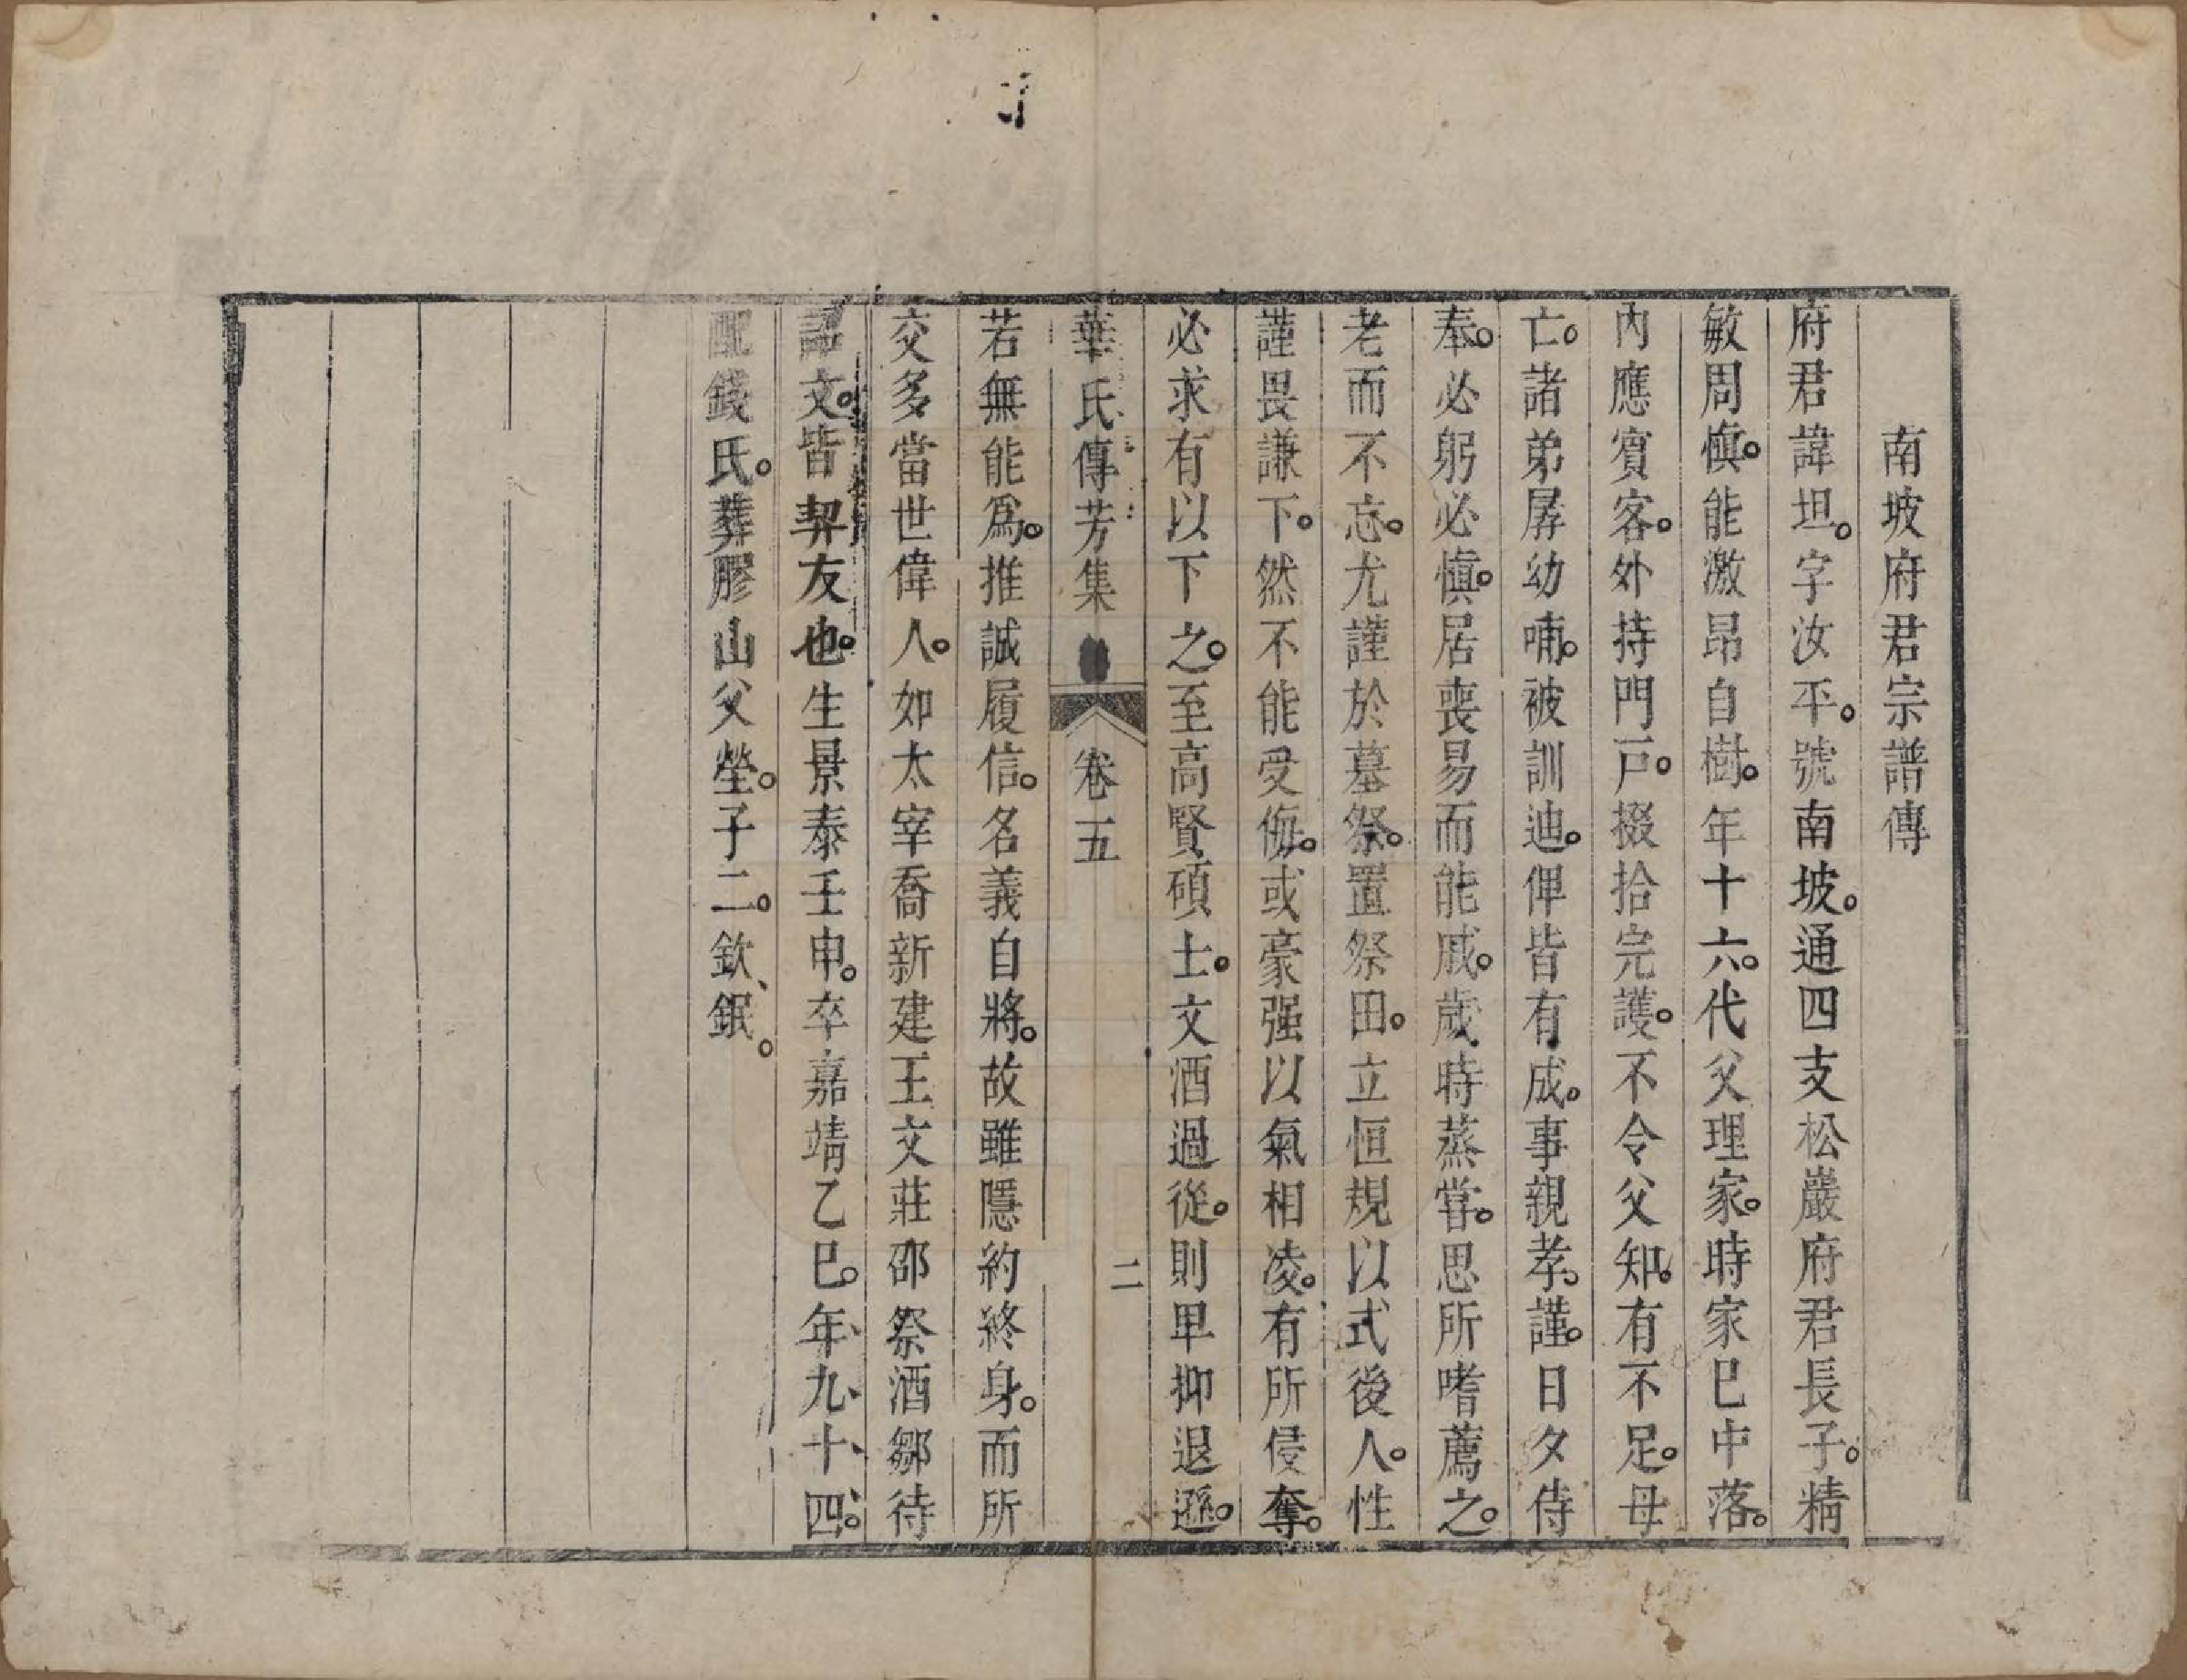 南坡府君宗譜傳
府君諱坦。字汝平。號南坡。通四支松巖府君長子。精
敏周慎。能激昂自樹。年十六。代父理家。時家巳中落。
內應賓客。外持門戸。掇拾完護。不令父知。有不足。母
亡。諸弟孱幼喃。被訓迪。俾皆有成。事親孝。謹。日夕侍
奉。必躬必慎。居喪易而能戚。歲時蒸甞。思所嗜薦之。
老而不忘。尤謹於墓祭。置祭田。立恒規以式後人。性
謹畏謙下。然不能受侮。或豪强以氣相凌。有所侵奪。
必求有以下之。至高賢碩士。文酒過從。則卑抑退遜。
華氏傳芳集 卷五 二
若無能爲。推誠履信。名義自將。故雖隱約終身。而所
交多當世偉人。如太宰喬新建王文莊邵祭酒鄒待
詔文。皆契友也。生景泰壬申。卒嘉靖乙巳。年、九、十、四。
配錢氏。葬膠山父塋。子二。欽、鈱。